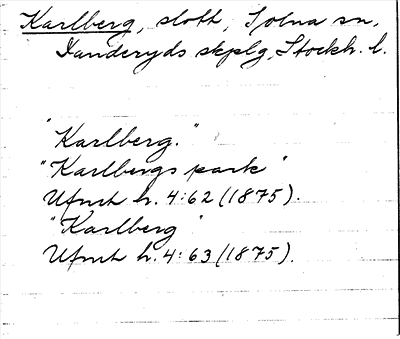 Karlberg, slott, Solna sn,
Danderyds skplg, Stockh. l.
"Karlberg."
"Karlbergs park"
Ufmrk h. 4:62 (1875).
"Karlberg"
Ufmrk h. 4:63 (1875).